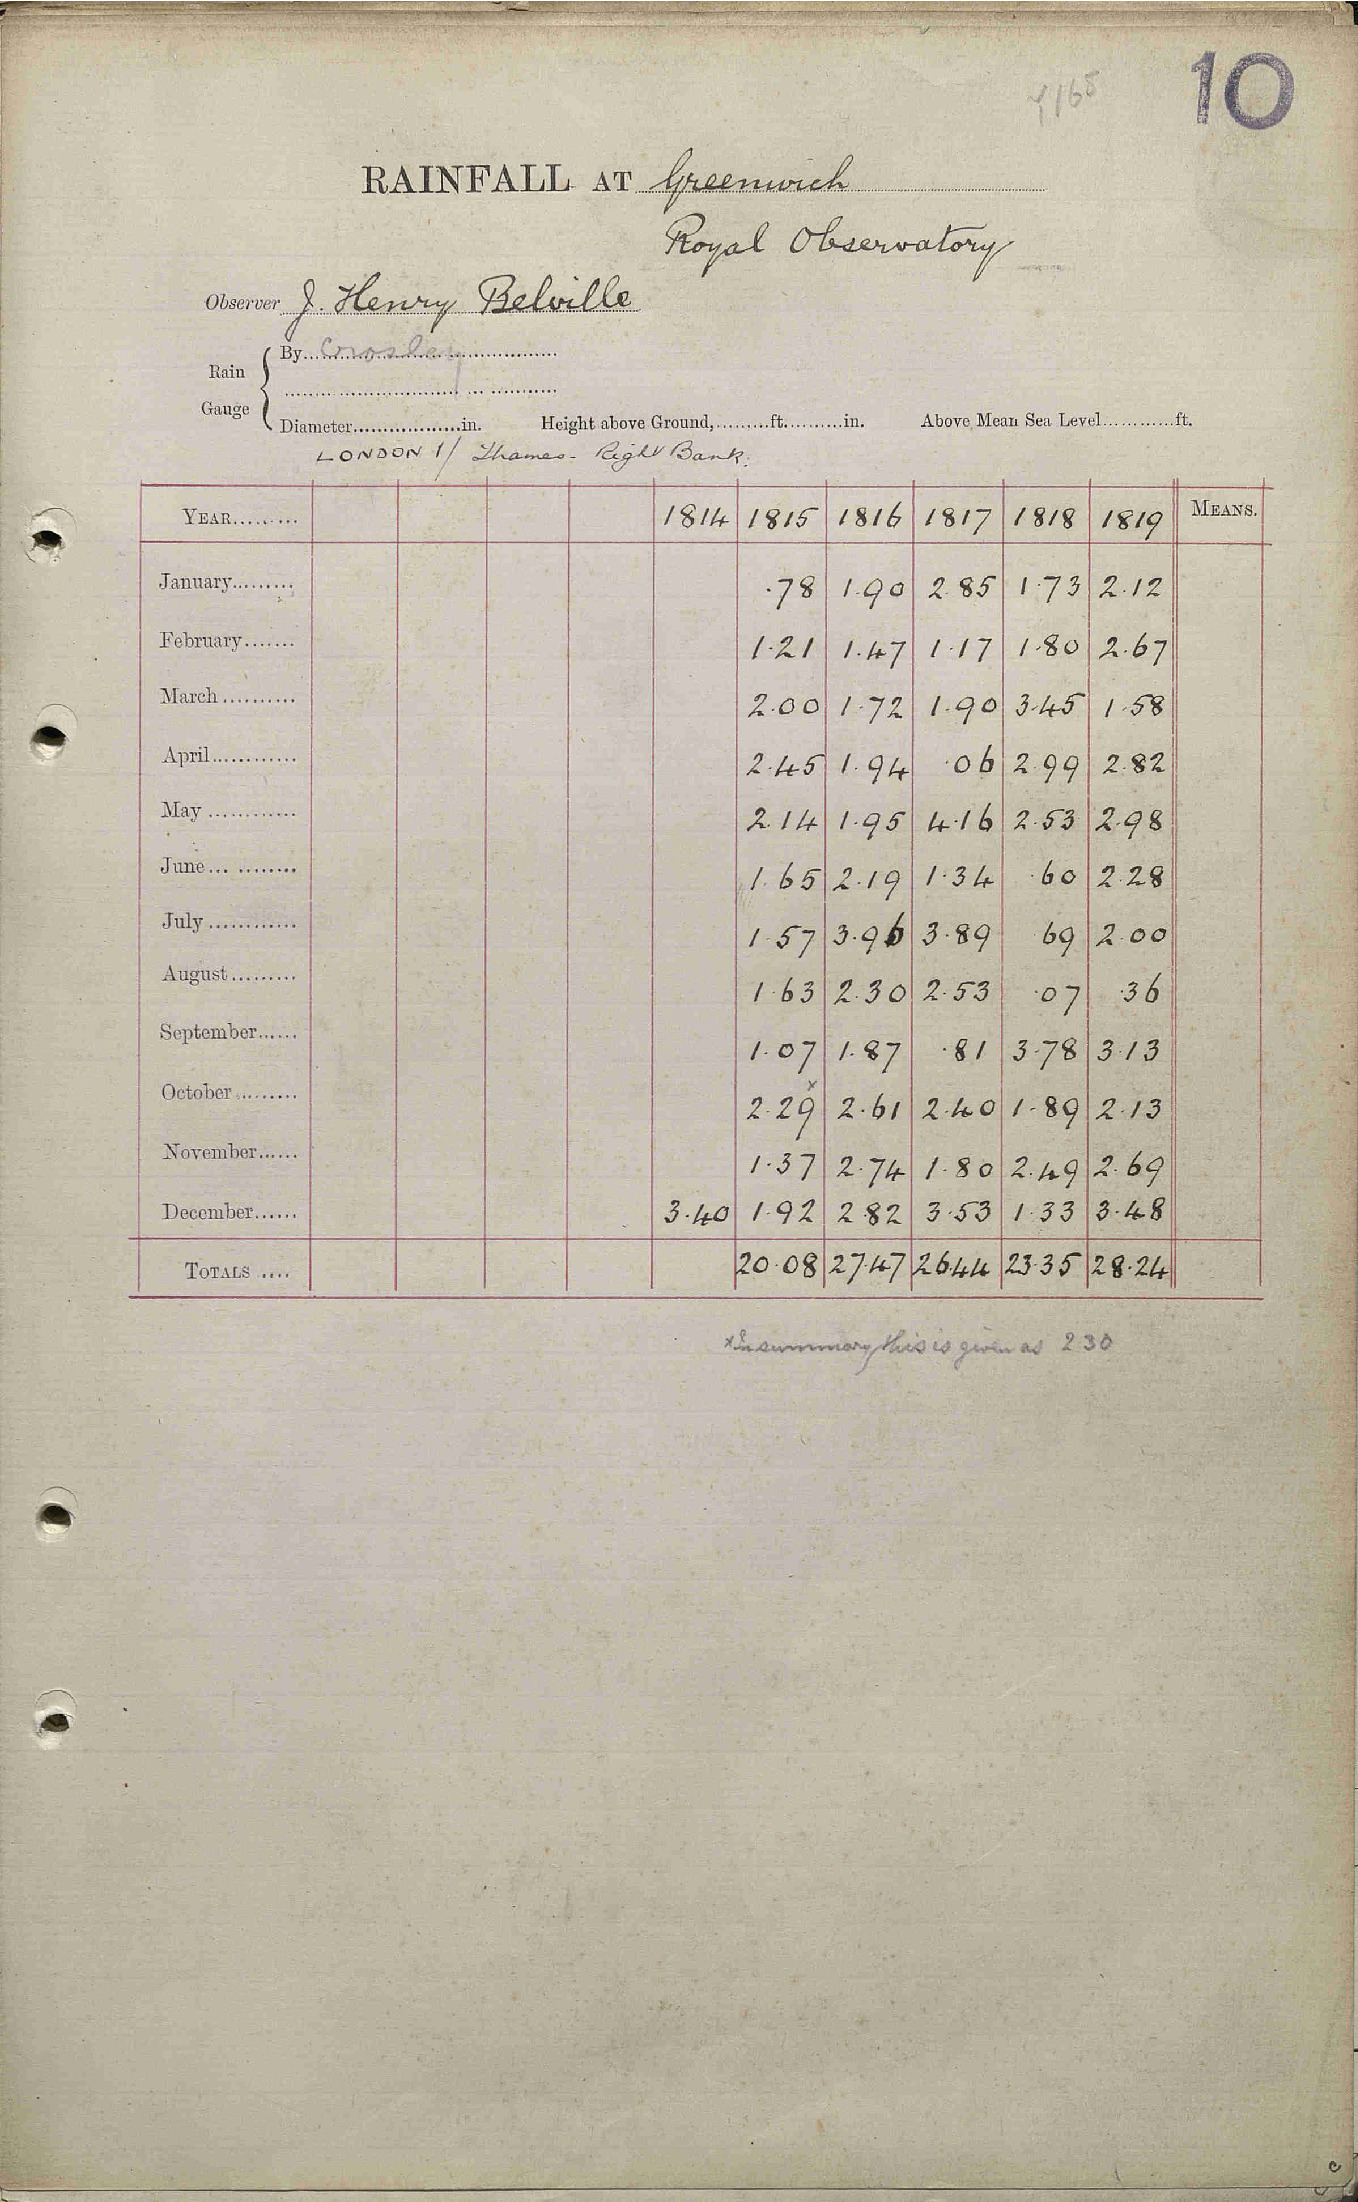 10
RAINFALL AT Greenwich
Royal Observatory
Observer J. Henry Belville
Rain Gauge By Crosley
Diameter in. Height above Ground, ft. in. Above Mean Sea Level ft.
LONDON 1/ Thames - Right Bank.
YEAR 1814 1815 1816 1817 1818 1819 MEANS.
January ·78 1.90 2.85 1.73 2.12
February 1.21 1.47 1.17 1.80 2.67
March 2.00 1.72 1.90 3.45 1.58
April 2.45 1.94 ·06 2.99 2.82
May 2.14 1.95 4.16 2.53 2.98
June 1.65 2.19 1.34 ·60 2.28
July 1.57 3.96 3.89 69 2.00
August 1.63 2.30 2.53 ·07 ·36
September 1.07 1.87 ·81 3.78 3.13
October 2.29x 2.61 2.40 1.89 2.13
November 1.37 2.74 1.80 2.49 2.69
December 3.40 1.92 2.82 3.53 1.33 3.48
TOTALS 20.08 27.47 26.44 23.35 28.24
x In summary this is given as 2 30